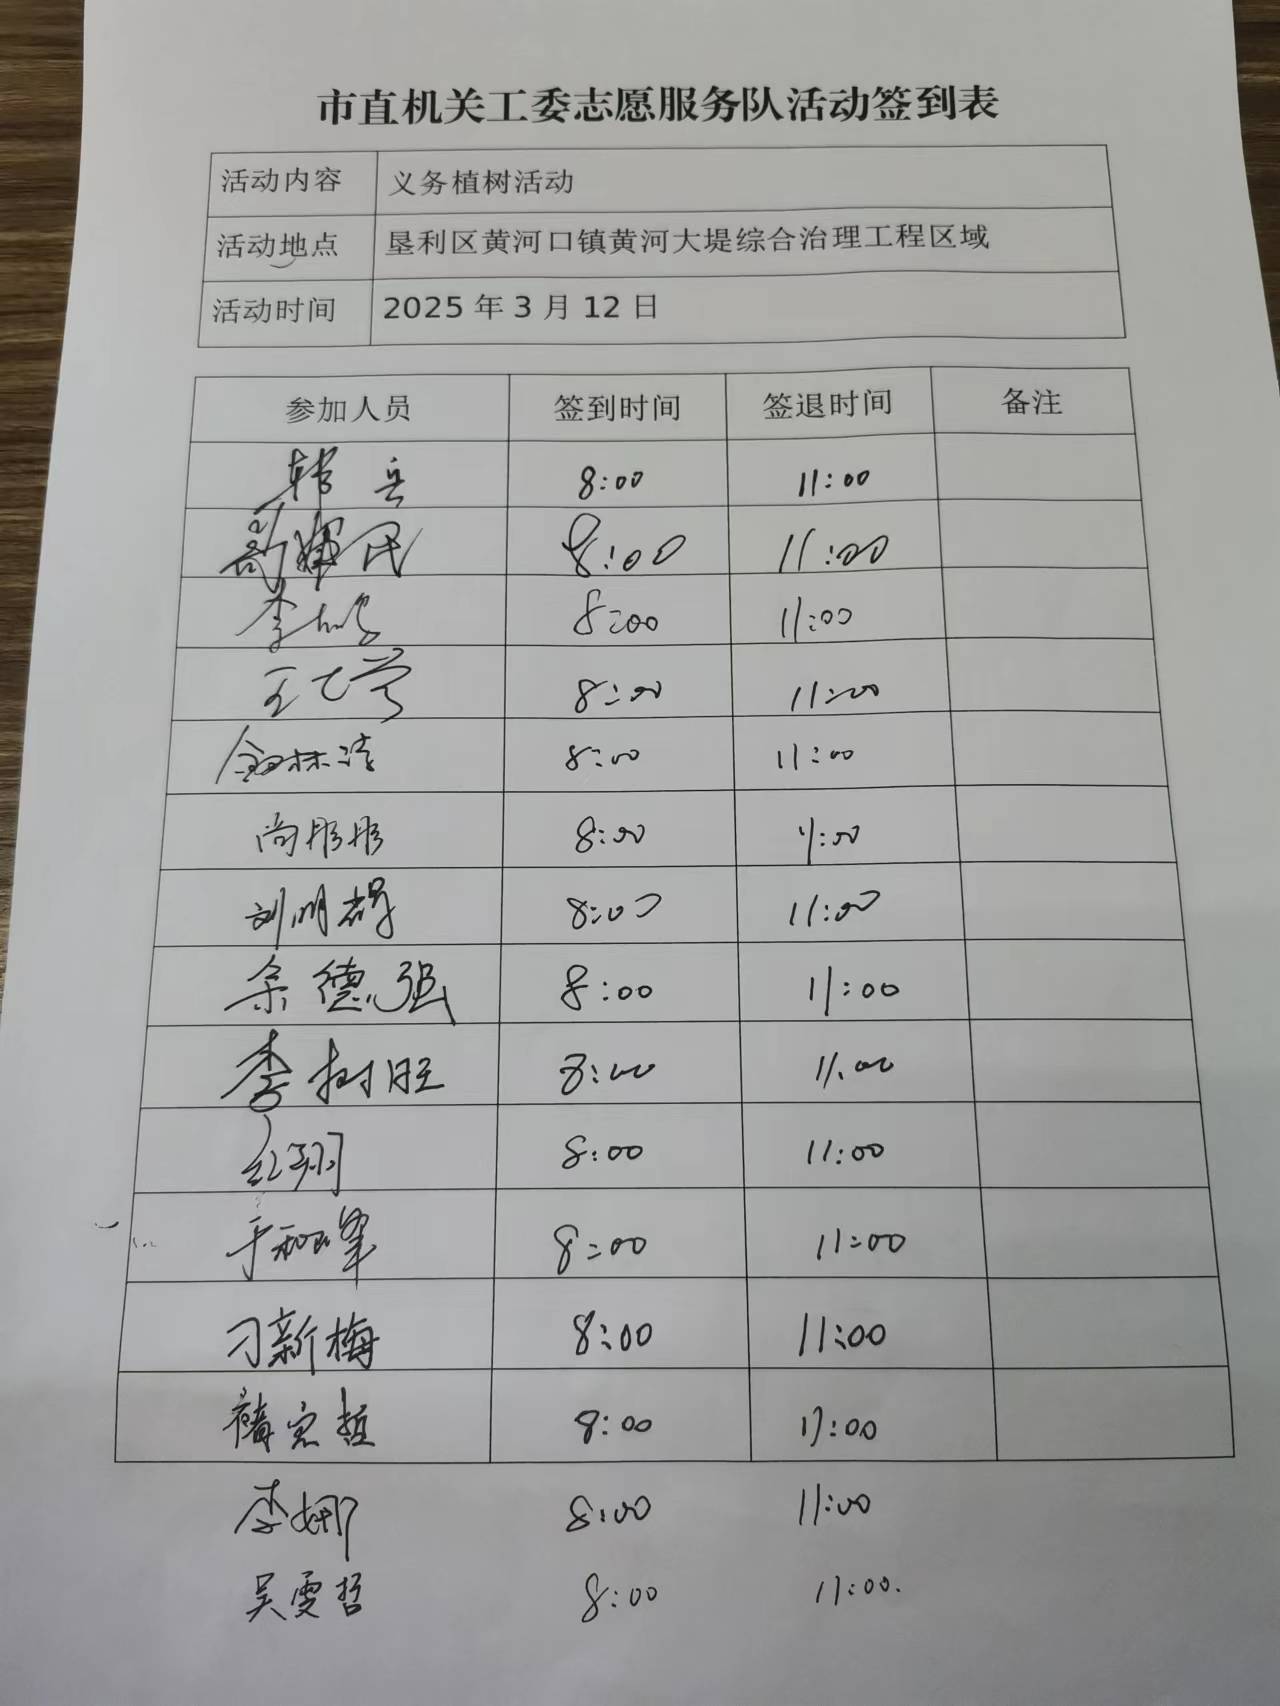 市直机关工委志愿服务队活动签到表
活动内容 义务植树活动
活动地点 垦利区黄河口镇黄河大堤综合治理工程区域
活动时间 2025 年 3 月 12 日
参加人员 签到时间 签退时间 备注
韩 8:00 11:00
民 8:00 11:00
李 8:00 11:00
王 8:00 11:00
林 8:00 11:00
尚彤彤 8:00 11:00
刘明 8:00 11:00
余德强 8:00 11:00
李树旺 8:00 11:00
翔 8:00 11:00
于和峰 8:00 11:00
刁新梅 8:00 11:00
哲 8:00 11:00
李娜 8:00 11:00
吴雯哲 8:00 11:00.